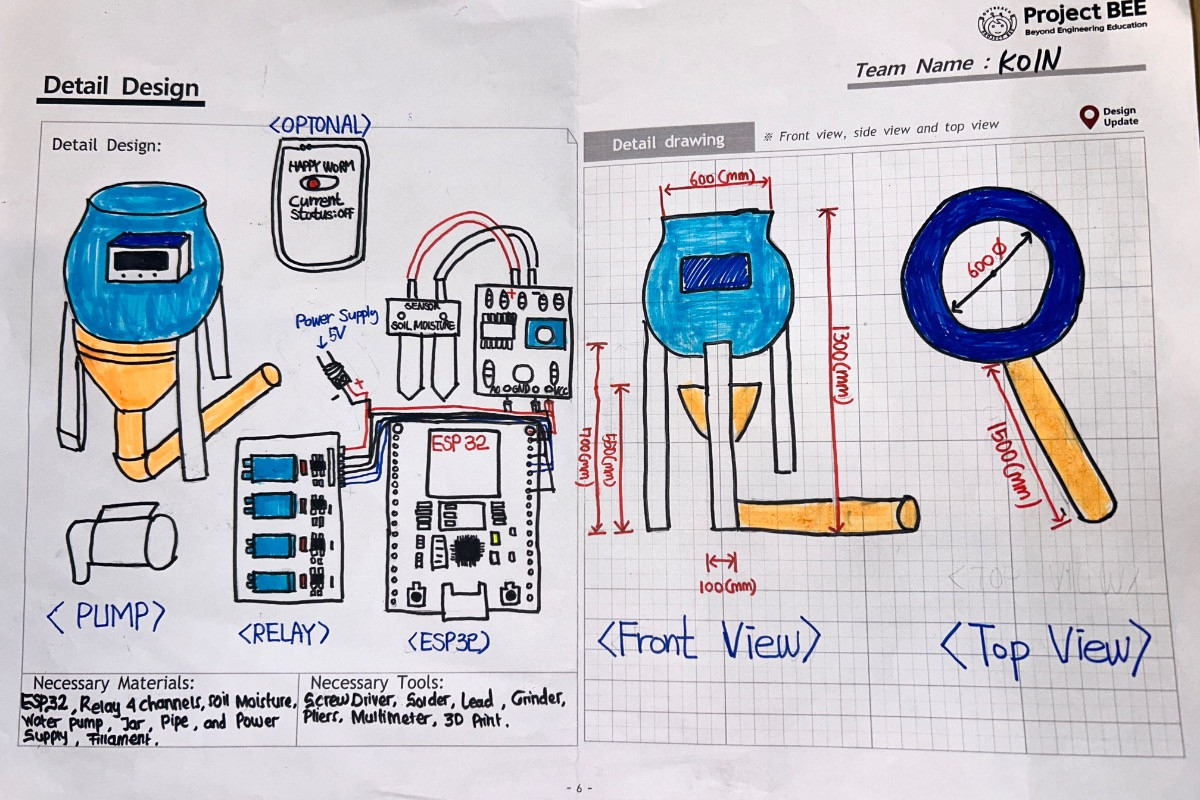 Project BEE
Beyond Engineering Education
Team Name : KOIN
Detail Design
Design
Update
Detail Design:
<OPTONAL>
HAPPY WORM
Current
Status:OFF
Power Supply
5V
+
SENSOR
SOIL MOISTURE
+ -
AO GND VCC
ESP 32
<PUMP>
<RELAY>
<ESP32>
Necessary Materials:
ESP32, Relay 4 channels, Soil Moisture,
Water pump, Jar, Pipe, and Power
Supply, Fillament.
Necessary Tools:
Screw Driver, Solder, Lead, Grinder,
Pliers, Multimeter, 3D Print.
Detail drawing
※ Front view, side view and top view
600(mm)
1300(mm)
700(mm)
100(mm)
600 Ø
1500(mm)
<Front View>
<Top View>
- 6 -